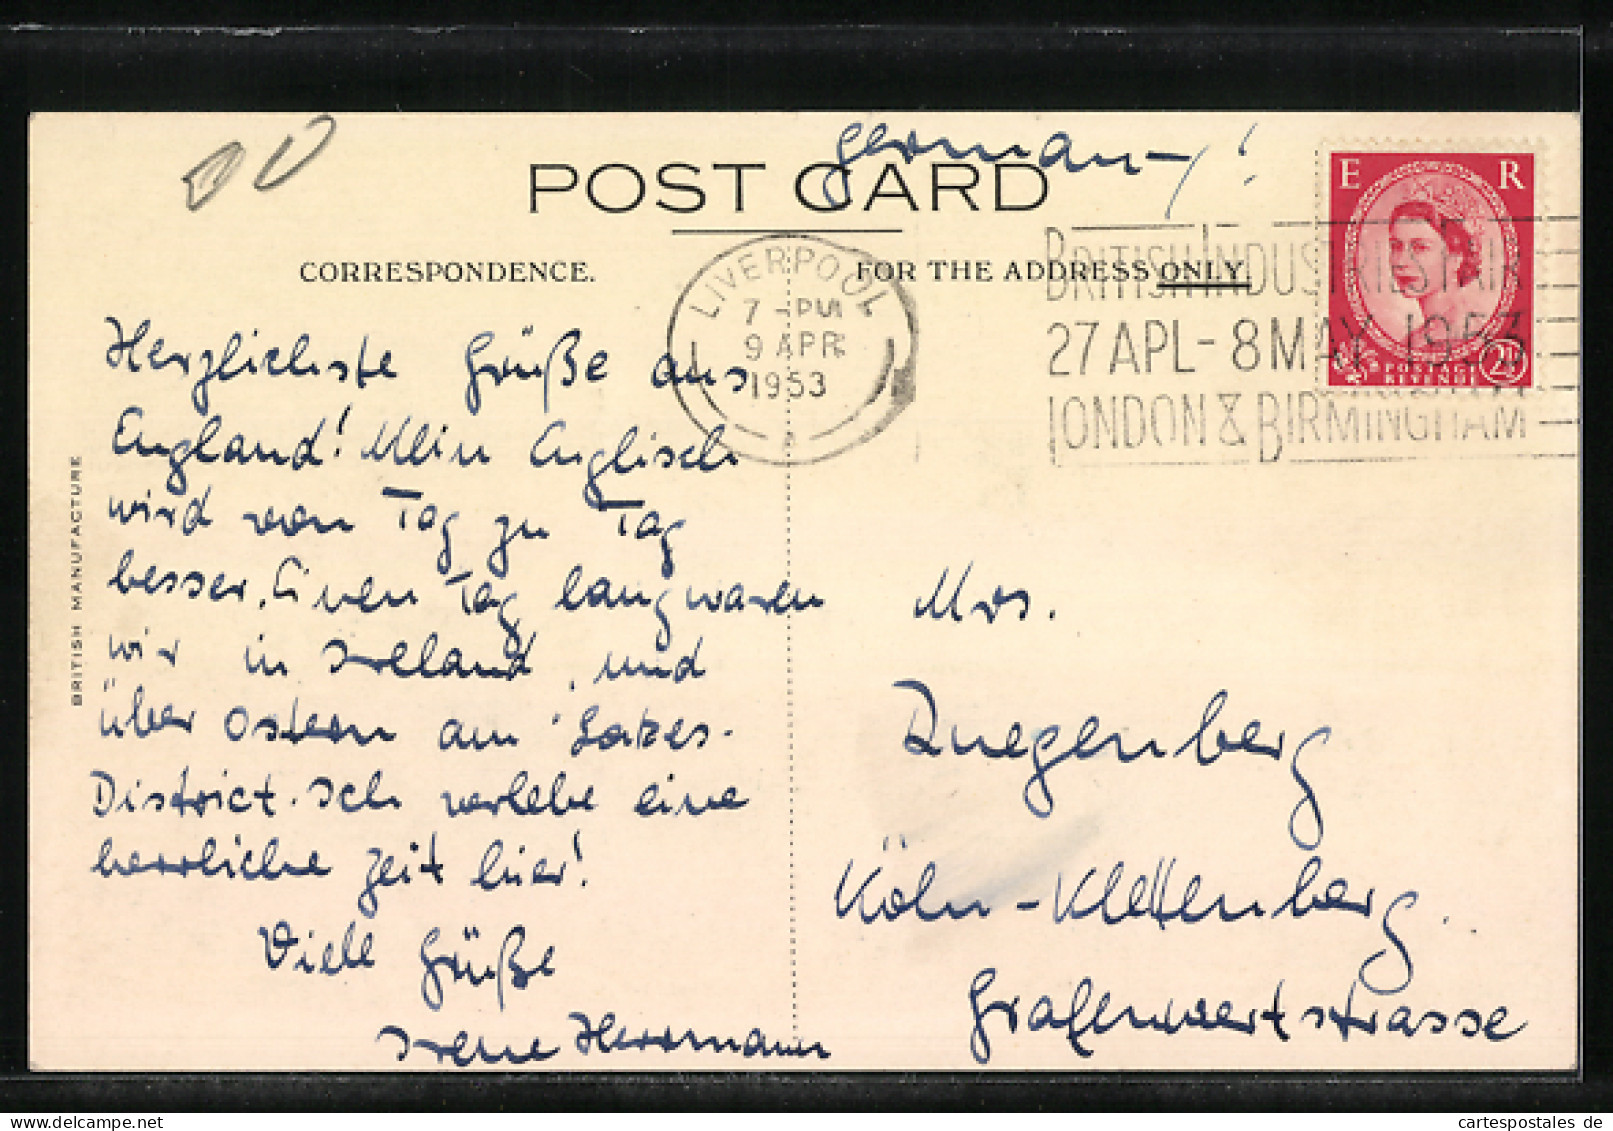 germany!
POST CARD
CORRESPONDENCE.
FOR THE ADDRESS ONLY.
LIVERPOOL
7 - PM
9 APR
1953
BRITISH INDUSTRIES FAIR
27 APL - 8 MAY 1953
LONDON & BIRMINGHAM
E R
POSTAGE
REVENUE
2½
BRITISH MANUFACTURE
Herzlichste Grüße aus
England! Mein Englisch
wird von Tag zu Tag
besser. Einen Tag lang waren
wir in Ireland, und
über Ostern am Lakes-
District. Ich verlebe eine
herrliche Zeit hier!
Viele Grüße
Irene Herrmann
Mrs.
Köln-Klettenberg.
Grafenwertstrasse
cartespostales de